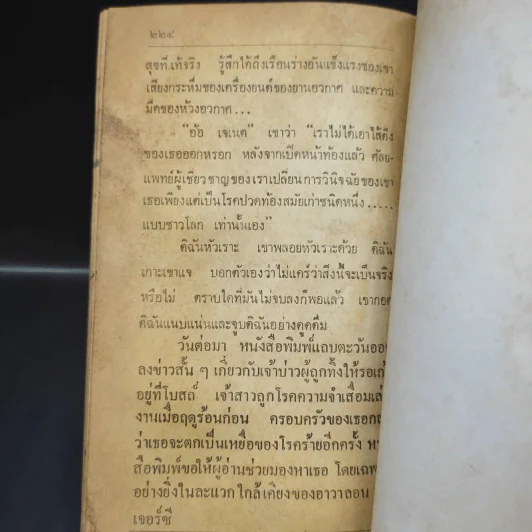 ๒๒๔
สุขที่แท้จริง รู้สึกได้ถึงเรือนร่างอันแข็งแรงของเขา
เสียงกระหึ่มของเครื่องยนต์ของยานอวกาศ และความ
มืดของห้วงอวกาศ...
"อ้อ เจเนต" เขาว่า "เราไม่ได้เอาไส้ติ่ง
ของเธอออกหรอก หลังจากเปิดหน้าท้องแล้ว ศัลย-
แพทย์ผู้เชี่ยวชาญของเราเปลี่ยนการวินิจฉัยของเขา
เธอเพียงแต่เป็นโรคปวดท้องสมัยเก่าชนิดหนึ่ง.....
แบบชาวโลก เท่านั้นเอง"
ดิฉันหัวเราะ เขาพลอยหัวเราะด้วย ดิฉัน
เกาะเขาแจ บอกตัวเองว่าไม่แคร์ว่าสิ่งนี้จะเป็นจริง
หรือไม่ ตราบใดที่มันไม่จบลงก็พอแล้ว เขากอด
ดิฉันแนบแน่นและจูบดิฉันอย่างดูดดื่ม
วันต่อมา หนังสือพิมพ์แถบตะวันออก
ลงข่าวสั้น ๆ เกี่ยวกับเจ้าบ่าวผู้ถูกทิ้งให้รอเก้
อยู่ที่โบสถ์ เจ้าสาวถูกโรคความจำเสื่อมเล่
งานเมื่อฤดูร้อนก่อน ครอบครัวของเธอ
ว่าเธอจะตกเป็นเหยื่อของโรคร้ายอีกครั้ง
สือพิมพ์ขอให้ผู้อ่านช่วยมองหาเธอ โดยเฉพ
อย่างยิ่งในละแวกใกล้เคียงของอาวาลอน
เจอร์ซี